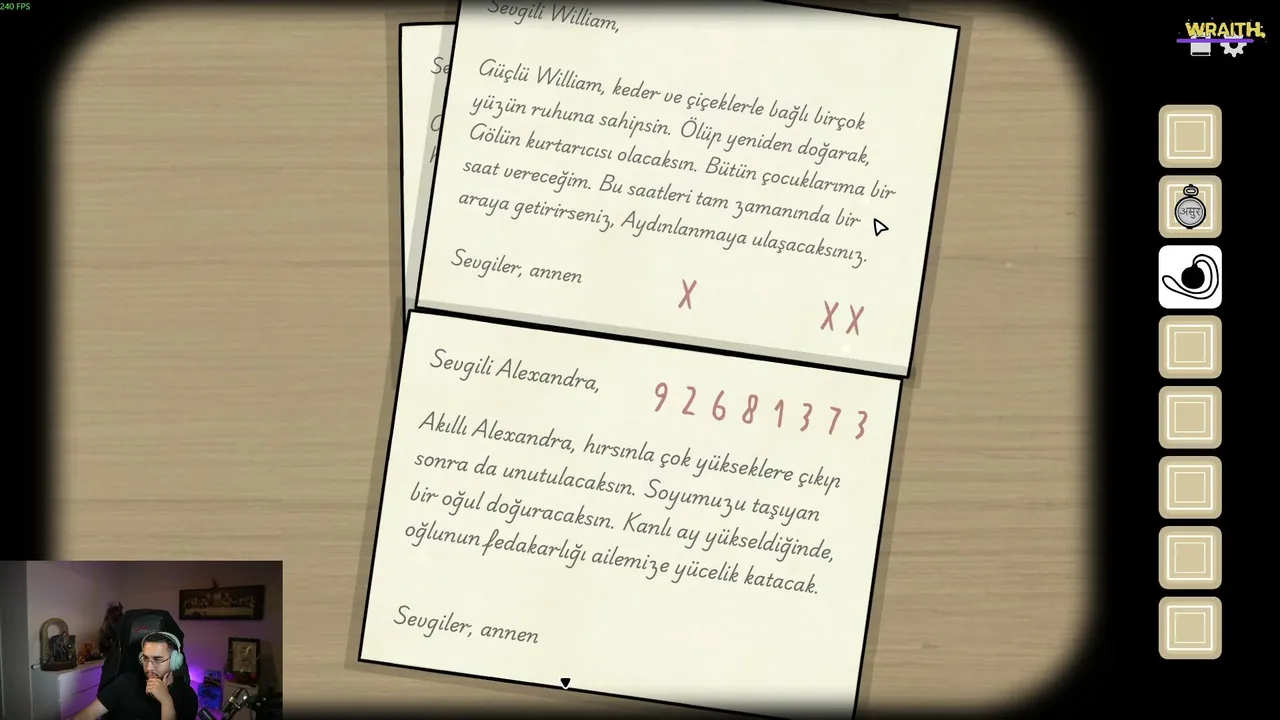 240 FPS
WRAITH.
Sevgili William,
Güçlü William, keder ve çiçeklerle bağlı birçok
yüzün ruhuna sahipsin. Ölüp yeniden doğarak,
Gölün kurtarıcısı olacaksın. Bütün çocuklarıma bir
saat vereceğim. Bu saatleri tam zamanında bir
araya getirirseniz, Aydınlanmaya ulaşacaksınız.
Sevgiler, annen
X XX
Sevgili Alexandra,
9 2 6 8 1 3 7 3
Akıllı Alexandra, hırsınla çok yükseklere çıkıp
sonra da unutulacaksın. Soyumuzu taşıyan
bir oğul doğuracaksın. Kanlı ay yükseldiğinde,
oğlunun fedakarlığı ailemize yücelik katacak.
Sevgiler, annen
असुर